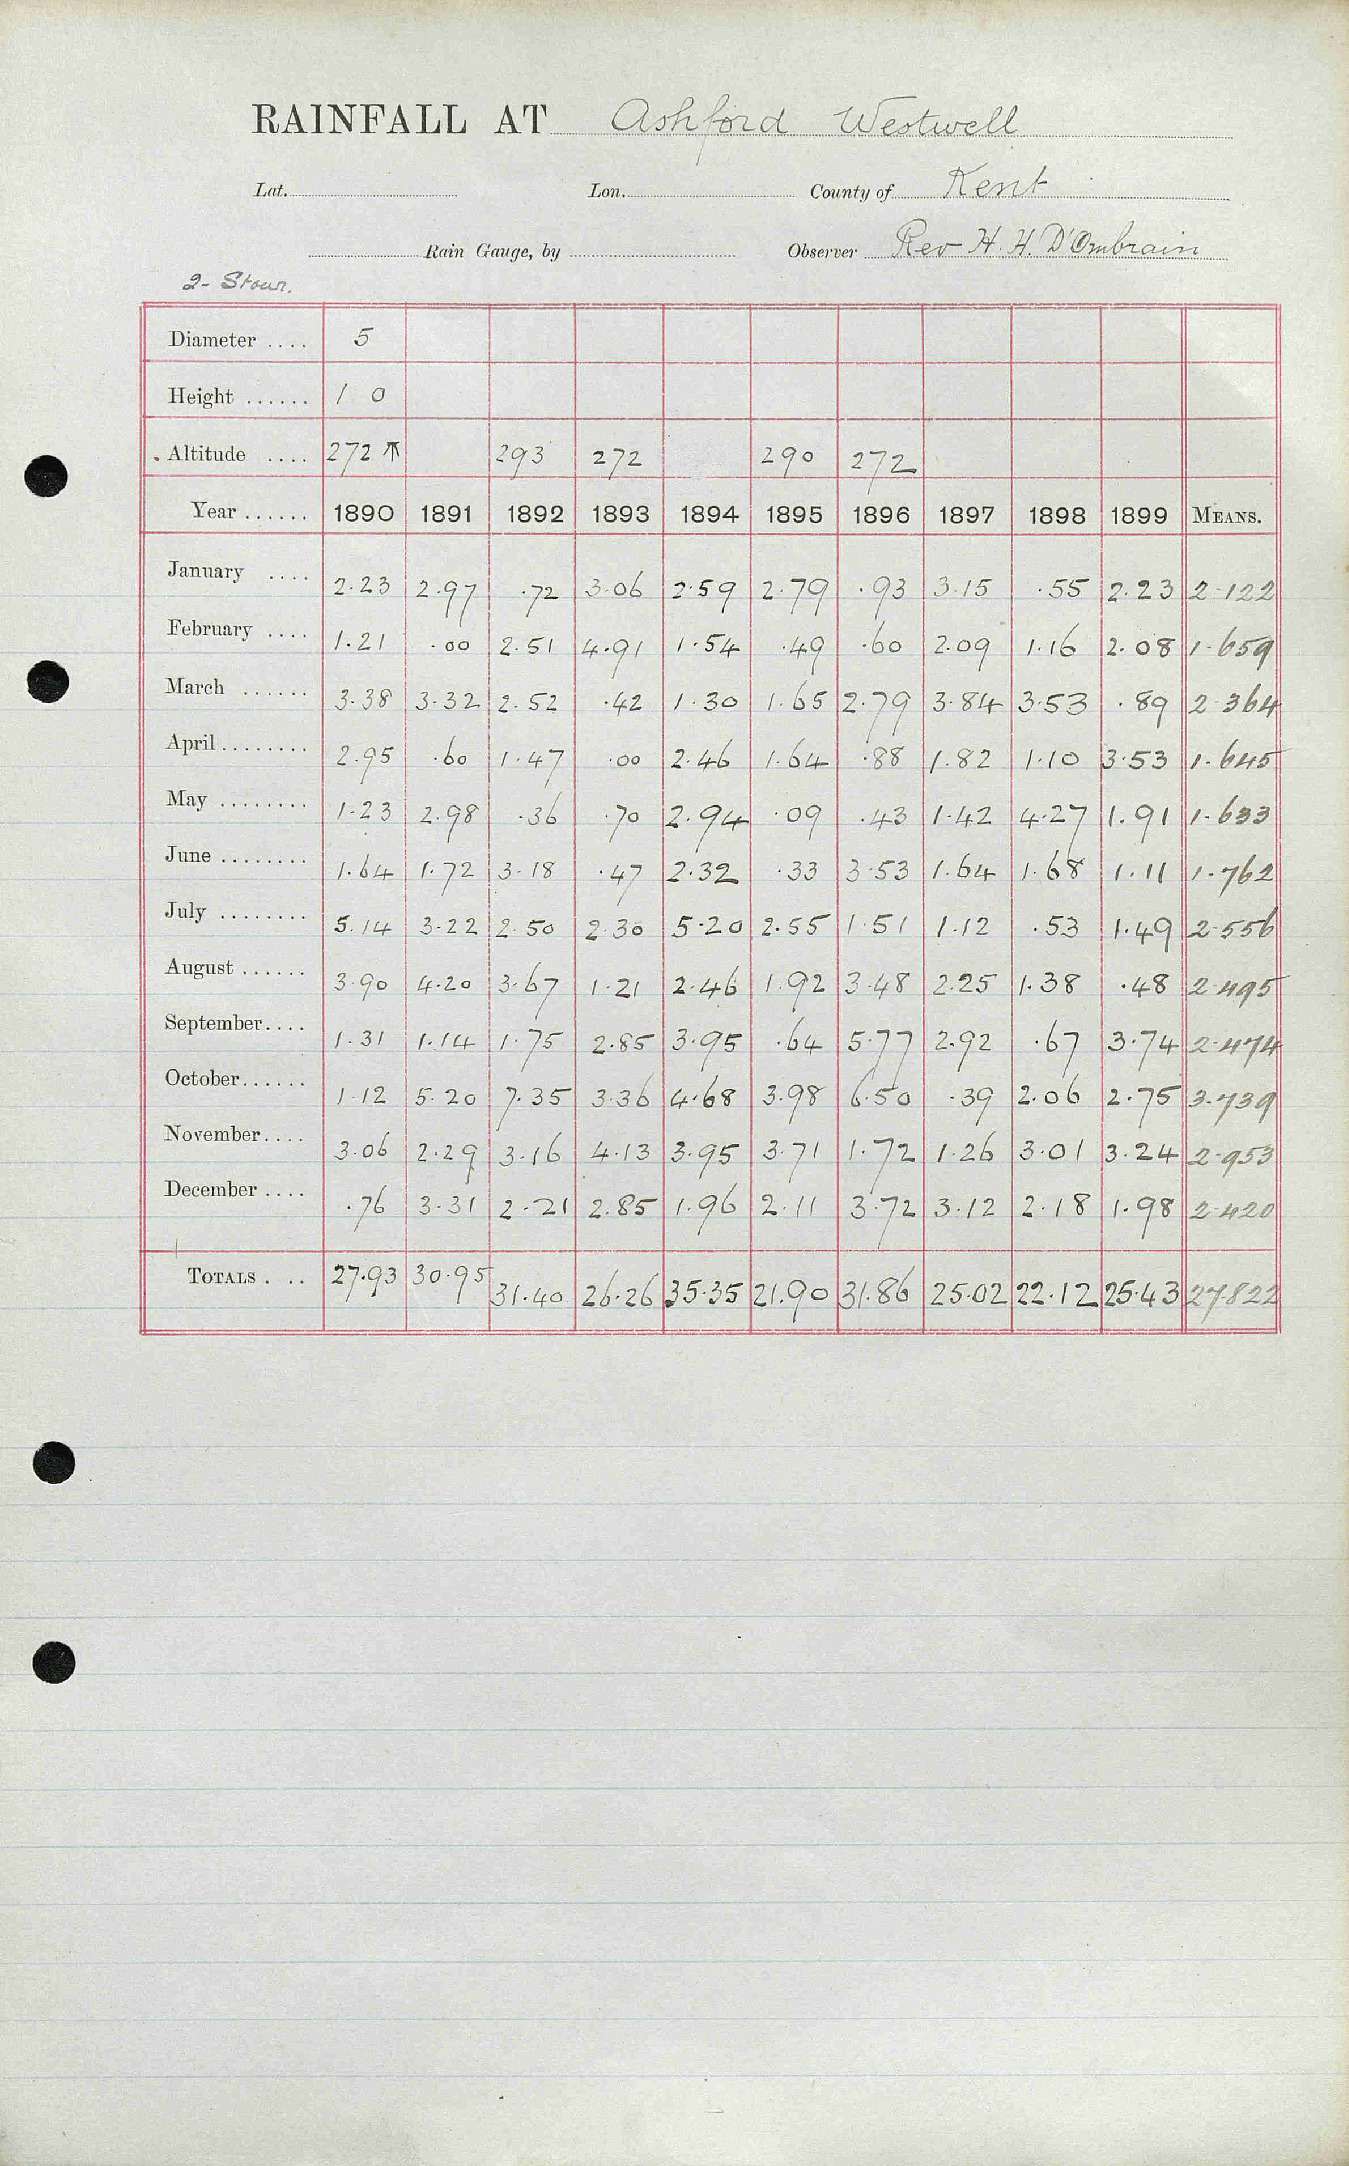 RAINFALL AT Ashford Westwell
Lat. Lon. County of Kent
Rain Gauge, by Observer Rev H. H. D'Ombrain
2- Stour.
Diameter .... 5
Height ...... 1 0
Altitude .... 272 ⚻ 293 272 290 272
Year ...... 1890 1891 1892 1893 1894 1895 1896 1897 1898 1899 MEANS.
January .... 2.23 2.97 .72 3.06 2.59 2.79 .93 3.15 .55 2.23 2.122
February .... 1.21 .00 2.51 4.91 1.54 .49 .60 2.09 1.16 2.08 1.659
March ...... 3.38 3.32 2.52 .42 1.30 1.65 2.79 3.84 3.53 .89 2.364
April ........ 2.95 .60 1.47 .00 2.46 1.64 .88 1.82 1.10 3.53 1.645
May ........ 1.23 2.98 .36 .70 2.94 .09 .43 1.42 4.27 1.91 1.633
June ........ 1.64 1.72 3.18 .47 2.32 .33 3.53 1.64 1.68 1.11 1.762
July ........ 5.14 3.22 2.50 2.30 5.20 2.55 1.51 1.12 .53 1.49 2.556
August ...... 3.90 4.20 3.67 1.21 2.46 1.92 3.48 2.25 1.38 .48 2.495
September.... 1.31 1.14 1.75 2.85 3.95 .64 5.77 2.92 .67 3.74 2.474
October...... 1.12 5.20 7.35 3.36 4.68 3.98 6.50 .39 2.06 2.75 3.739
November.... 3.06 2.29 3.16 4.13 3.95 3.71 1.72 1.26 3.01 3.24 2.953
December .... .76 3.31 2.21 2.85 1.96 2.11 3.72 3.12 2.18 1.98 2.420
TOTALS . .. 27.93 30.95 31.40 26.26 35.35 21.90 31.86 25.02 22.12 25.43 27.822